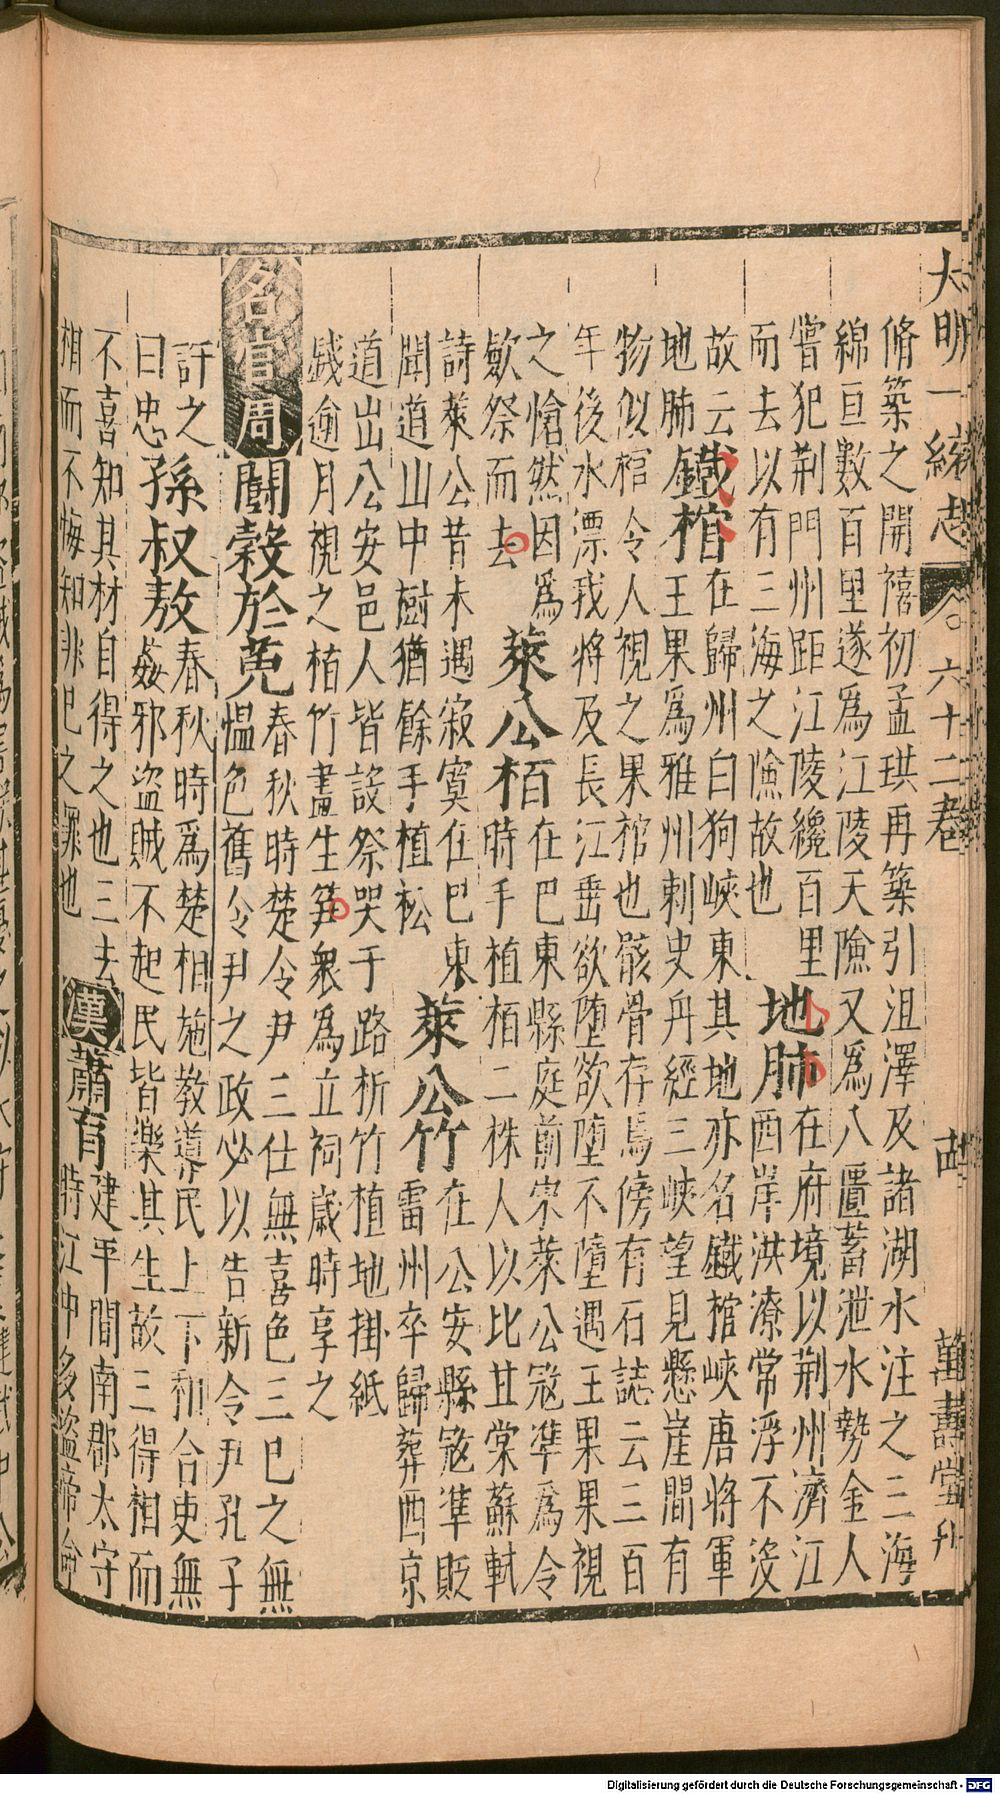 大明一統志 六十二卷 十四 萬壽堂刊
脩築之開禧初孟珙再築引沮澤及諸湖水注之三海
綿亘數百里遂爲江陵天險又爲八匱蓄泄水勢金人
嘗犯荆門州距江陵纔百里 地肺 在府境以荆州濟江
而去以有三海之險故也 西岸洪潦常浮不沒
故云 鐵棺 在歸州白狗峽東其地亦名鐵棺峽唐將軍
地肺 王果爲雅州刺史舟經三峽望見懸崖間有
物似棺令人視之果棺也骸骨存焉傍有石誌云三百
年後水漂我將及長江垂欲墮欲墮不墮遇王果果視
之愴然因爲 萊公栢 在巴東縣庭前宋萊公宼準爲令
歛祭而去 時手植栢二株人以比甘棠蘇軾
詩萊公昔未遇寂寞在巴東 萊公竹 在公安縣宼準貶
聞道山中樹猶餘手植松 雷州卒歸葬西京
道出公安邑人皆設祭哭于路折竹植地掛紙
錢逾月視之枯竹盡生筍衆爲立祠歲時享之
名宦 周 鬭穀於菟 春秋時楚令尹三仕無喜色三已之無
慍色舊令尹之政必以告新令尹孔子
許之 孫叔敖 春秋時爲楚相施教導民上下和合吏無
曰忠 姦邪盜賊不起民皆樂其生故三得相而
不喜知其材自得之也三去 漢 蕭育 建平間南郡太守
相而不悔知非已之罪也 時江中多盜帝命
Digitalisierung gefördert durch die Deutsche Forschungsgemeinschaft - DFG